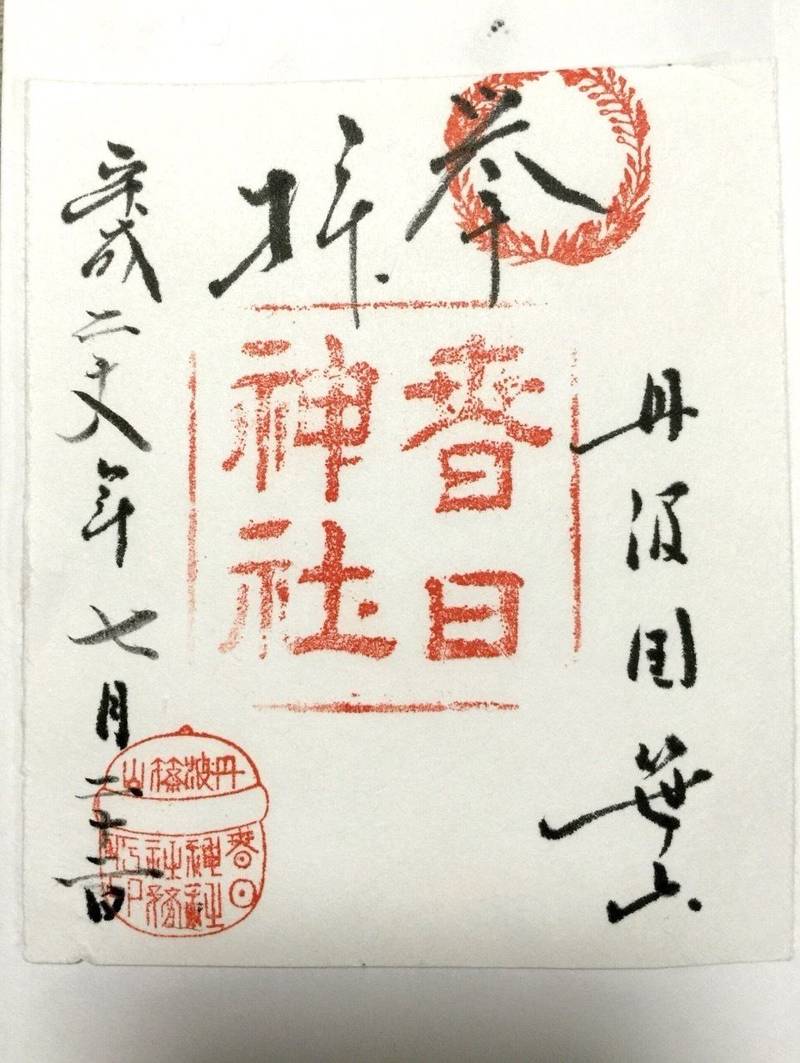 奉拝
丹波国笹山
春日
神社
平成二十八年七月
丹波篠山
春日神社社務所印